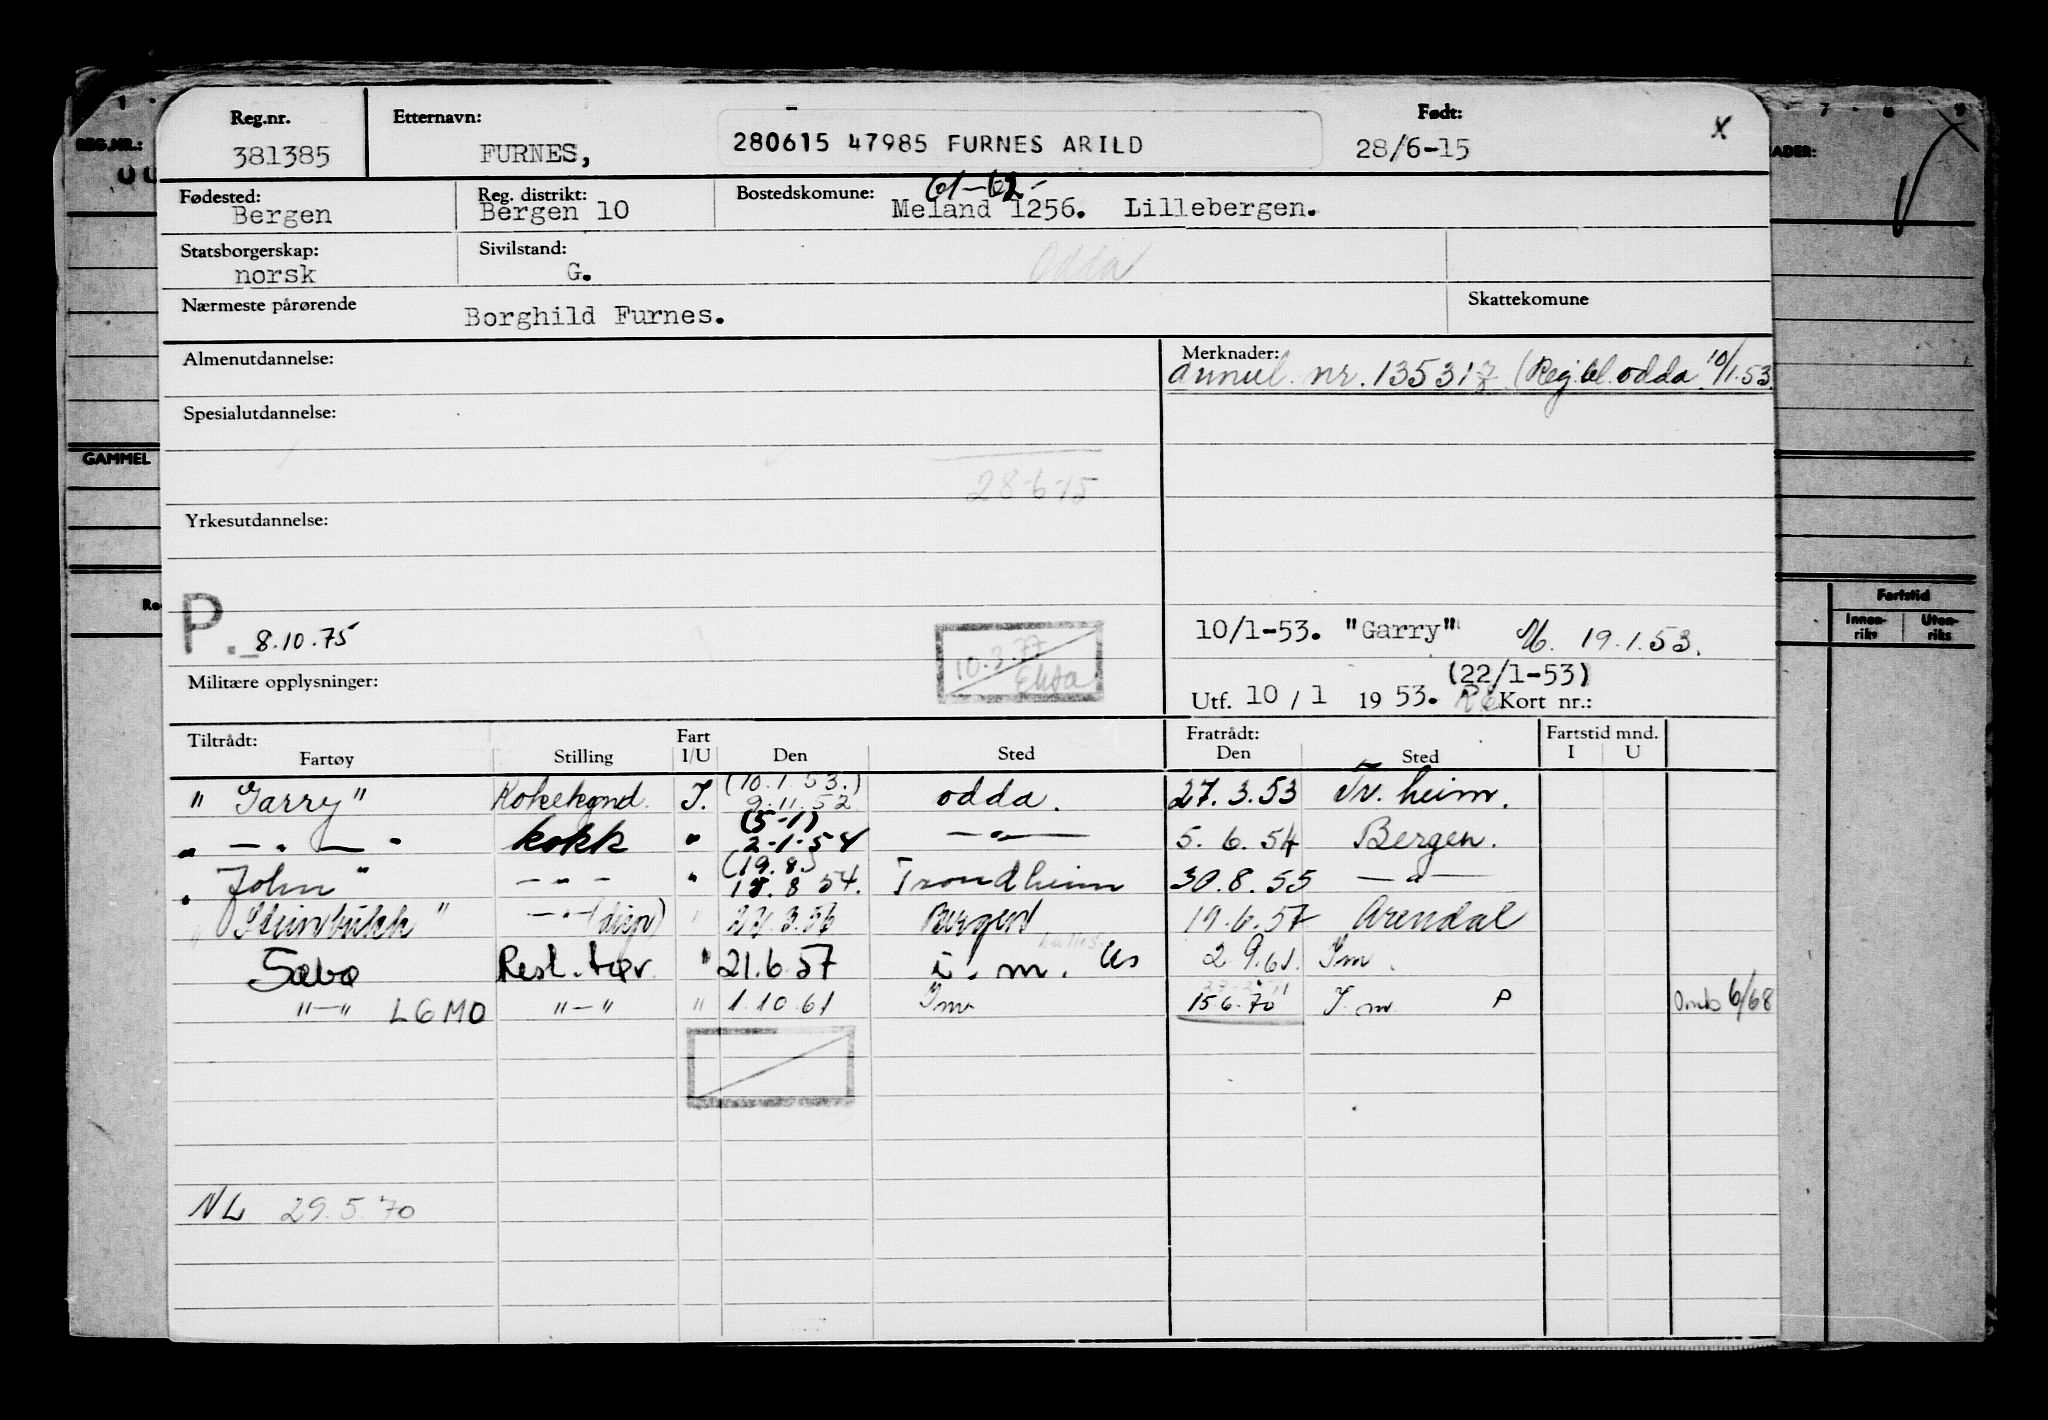 Reg.nr. Etternavn: Født:
381385 FURNES, 280615 47985 FURNES ARILD 28/6-15 x
REG.NR.:
Fødested: Reg. distrikt: Bostedskomune: 61-62-
Bergen Bergen 10 Meland 1256. Lillebergen.
Statsborgerskap: Sivilstand:
norsk G. Odda
Nærmeste pårørende Borghild Furnes. Skattekomune
Almenutdannelse: Merknader:
annul. nr. 135317 (Reg.bl. odda 10/1.53.
Spesialutdannelse:
GAMMEL
28-6-15
Yrkesutdannelse:
Fartstid
Innen-riks Uten-riks
P. 8.10.75
10/1-53. "Garry" 19.1.53.
10.3.77
(22/1-53)
Militære opplysninger: Utf. 10 / 1 19 53. Kort nr.:
Tiltrådt: Fart Fratrådt: Fartstid mnd.
Fartøy Stilling I/U Den Sted Den Sted I U
(10.1.53.)
"Garry" Kokekynd. I. 9.11.52 odda. 27.3.53 Tr.heim.
(5-1)
" — " — " kokk " 2-1-54 — " — 5.6.54 Bergen.
(19.8.)
"John" — " — " 18.8 54. Trondheim 30.8.55 — " —
"Steinbukk" — " — (disp) " 22.3.56 Bergen 19.6.57 Arendal
Sæbø Rest. " 21.6.57 i. m. 2 9.61. Im.
"—" LGMO "—" " 1.10.61 Im 15.6.70 I. m. P 6/68
NL 29.5.70